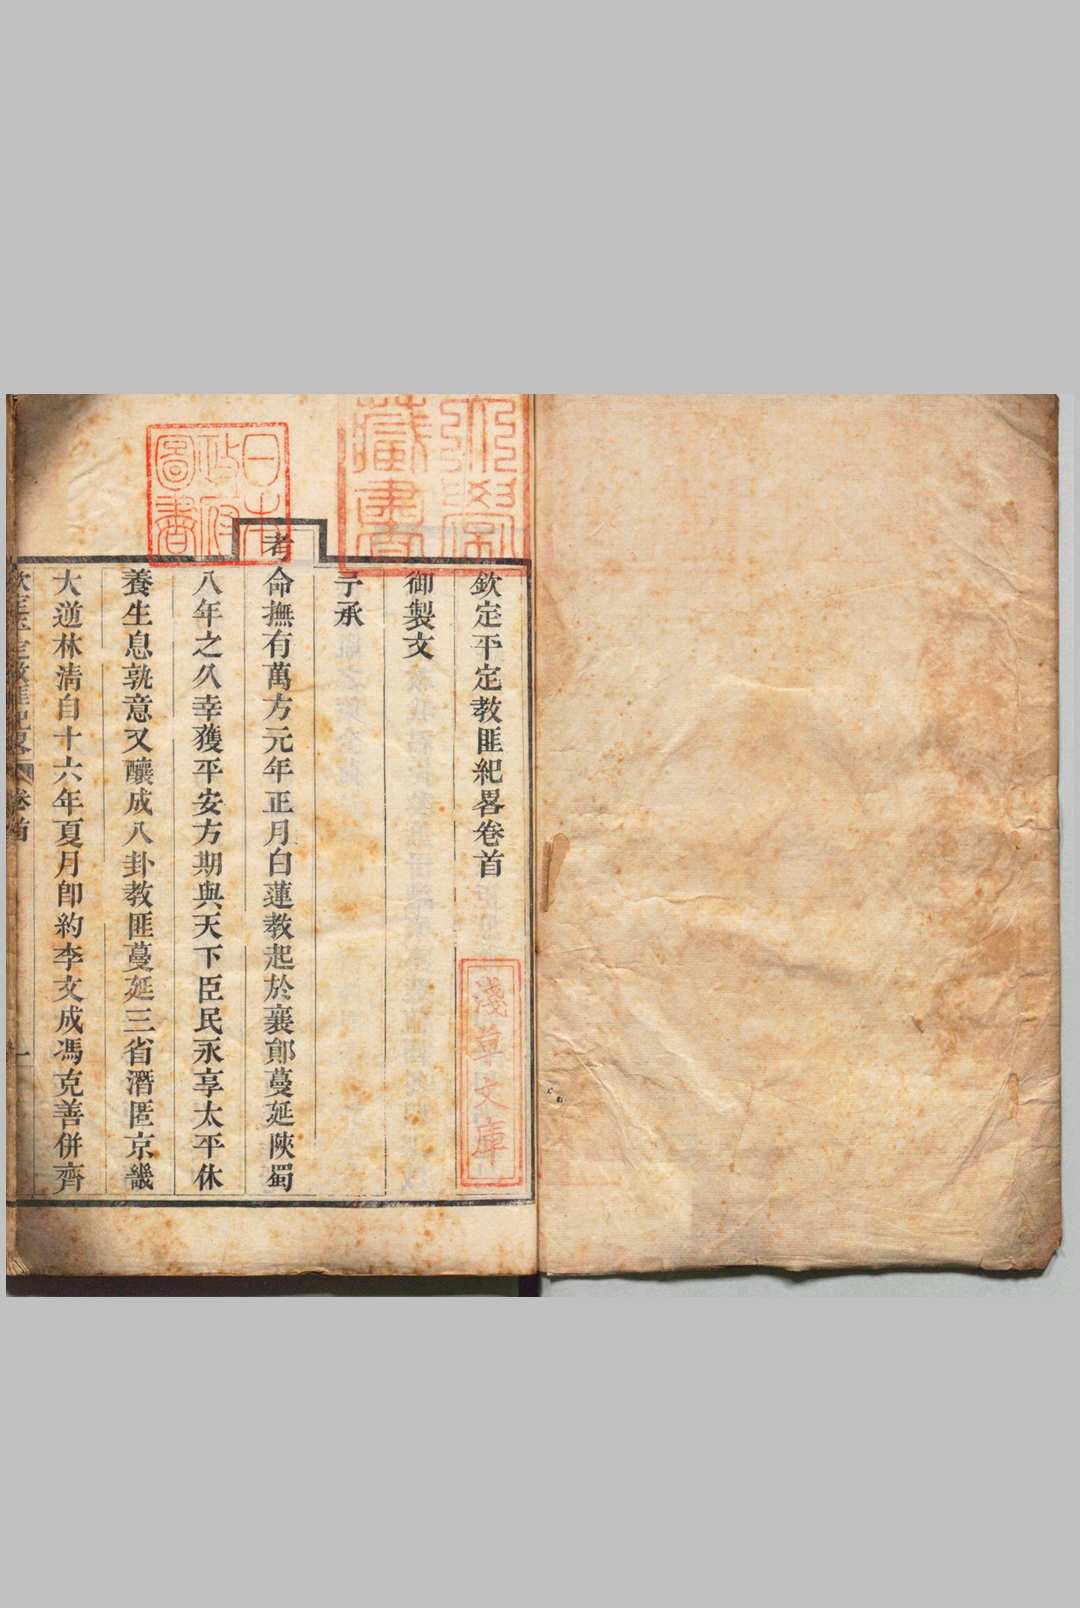 欽定平定教匪紀畧卷首
御製文
予承
考命撫有萬方元年正月白蓮教起於襄鄖蔓延陝蜀
八年之久幸獲平安方期與天下臣民永享太平休
養生息孰意又釀成八卦教匪蔓延三省潛匿京畿
大逆林淸自十六年夏月卽約李文成馮克善併齊
欽定平定教匪紀畧 卷首 一
淺草文庫
日本政府圖書